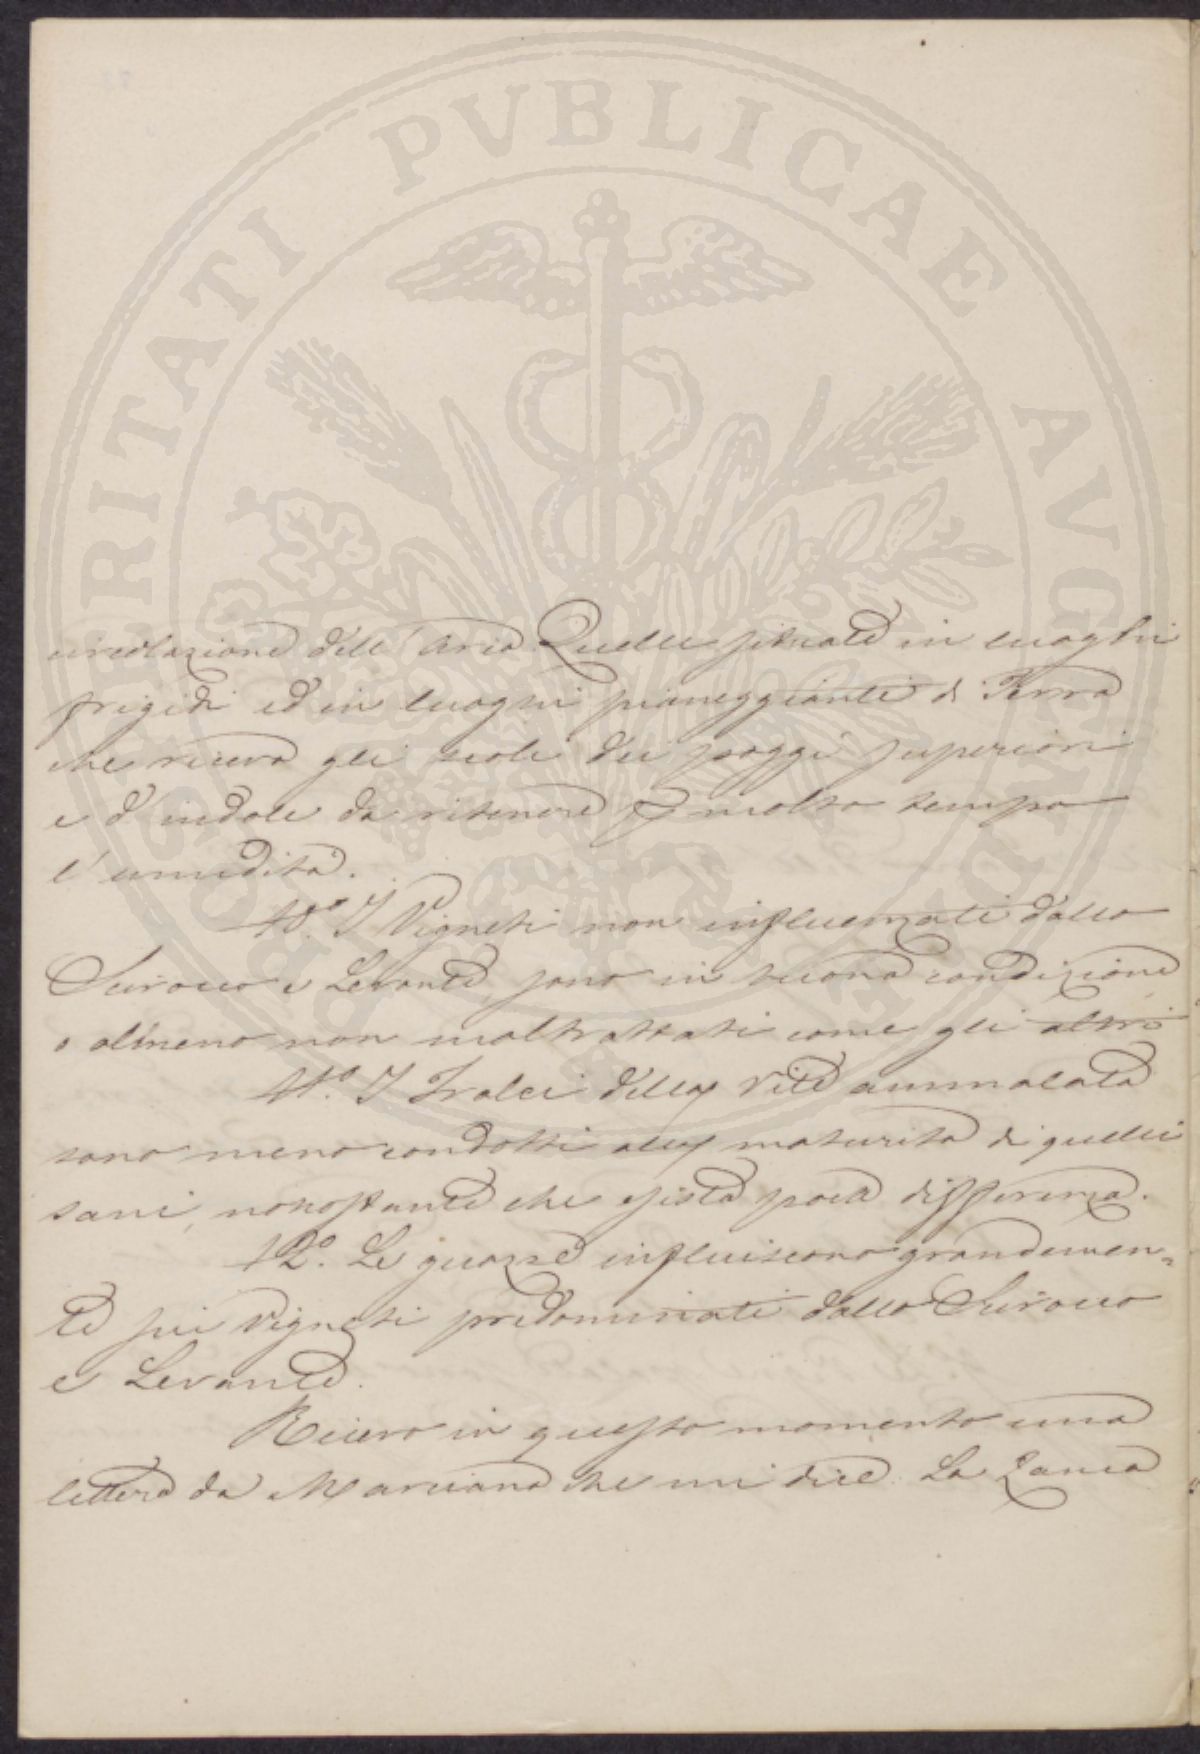 PROSPERITATI PVBLICAE AVGENDAE
circolazione dell' Aria Quelle situate in luoghi
frigidi ed in luoghi pianeggianti di Terra
che riceva gli scoli dei poggi superiori
e d' indole da ritenere p molto tempo
l' umidità.
10.º I Vigneti non influenzati dallo
Scirocco e Levante, sono in buona condizione
o almeno non maltrattati come gli altri
11.º I Tralci della Vite ammalata
sono meno condotti alla maturità di quelli
sani, nonostante che esista poca differenza.
12.º Le guazze influiscono grandemen=
te sui Vigneti predominati dallo Scirocco
e Levante.
Ricevo in questo momento una
lettera da Marciana che mi dice: La Zanca